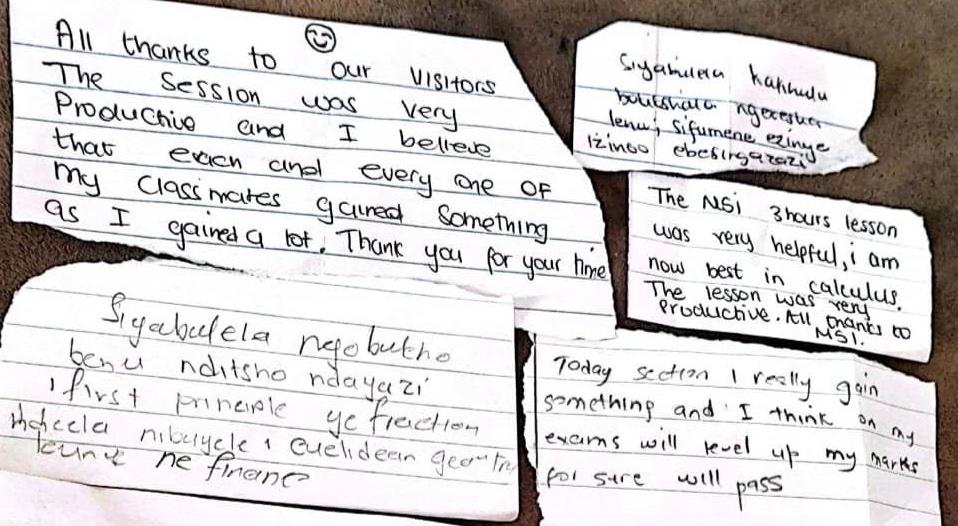 All thanks to our VISITORS
The Session was very
Productive and I believe
that each and every one OF
my Classmates gained Something
as I gained a lot. Thank you for your time
Siyabulela kakhulu
ngexesha
lenu, Sifumene ezinye
izinto ebesingazazi
The NSi 3hours lesson
was very helpful, i am
now best in calculus.
The lesson was very
Productive. All thanks to
MSI.
Siyabulela ngobukho
benu nditsho ndayazi
i first principle ye fraction
ndicela nibuyele i euclidean geometry
ne finance
Today section I really gain
something and I think on my
exams will level up my marks
for sure will pass